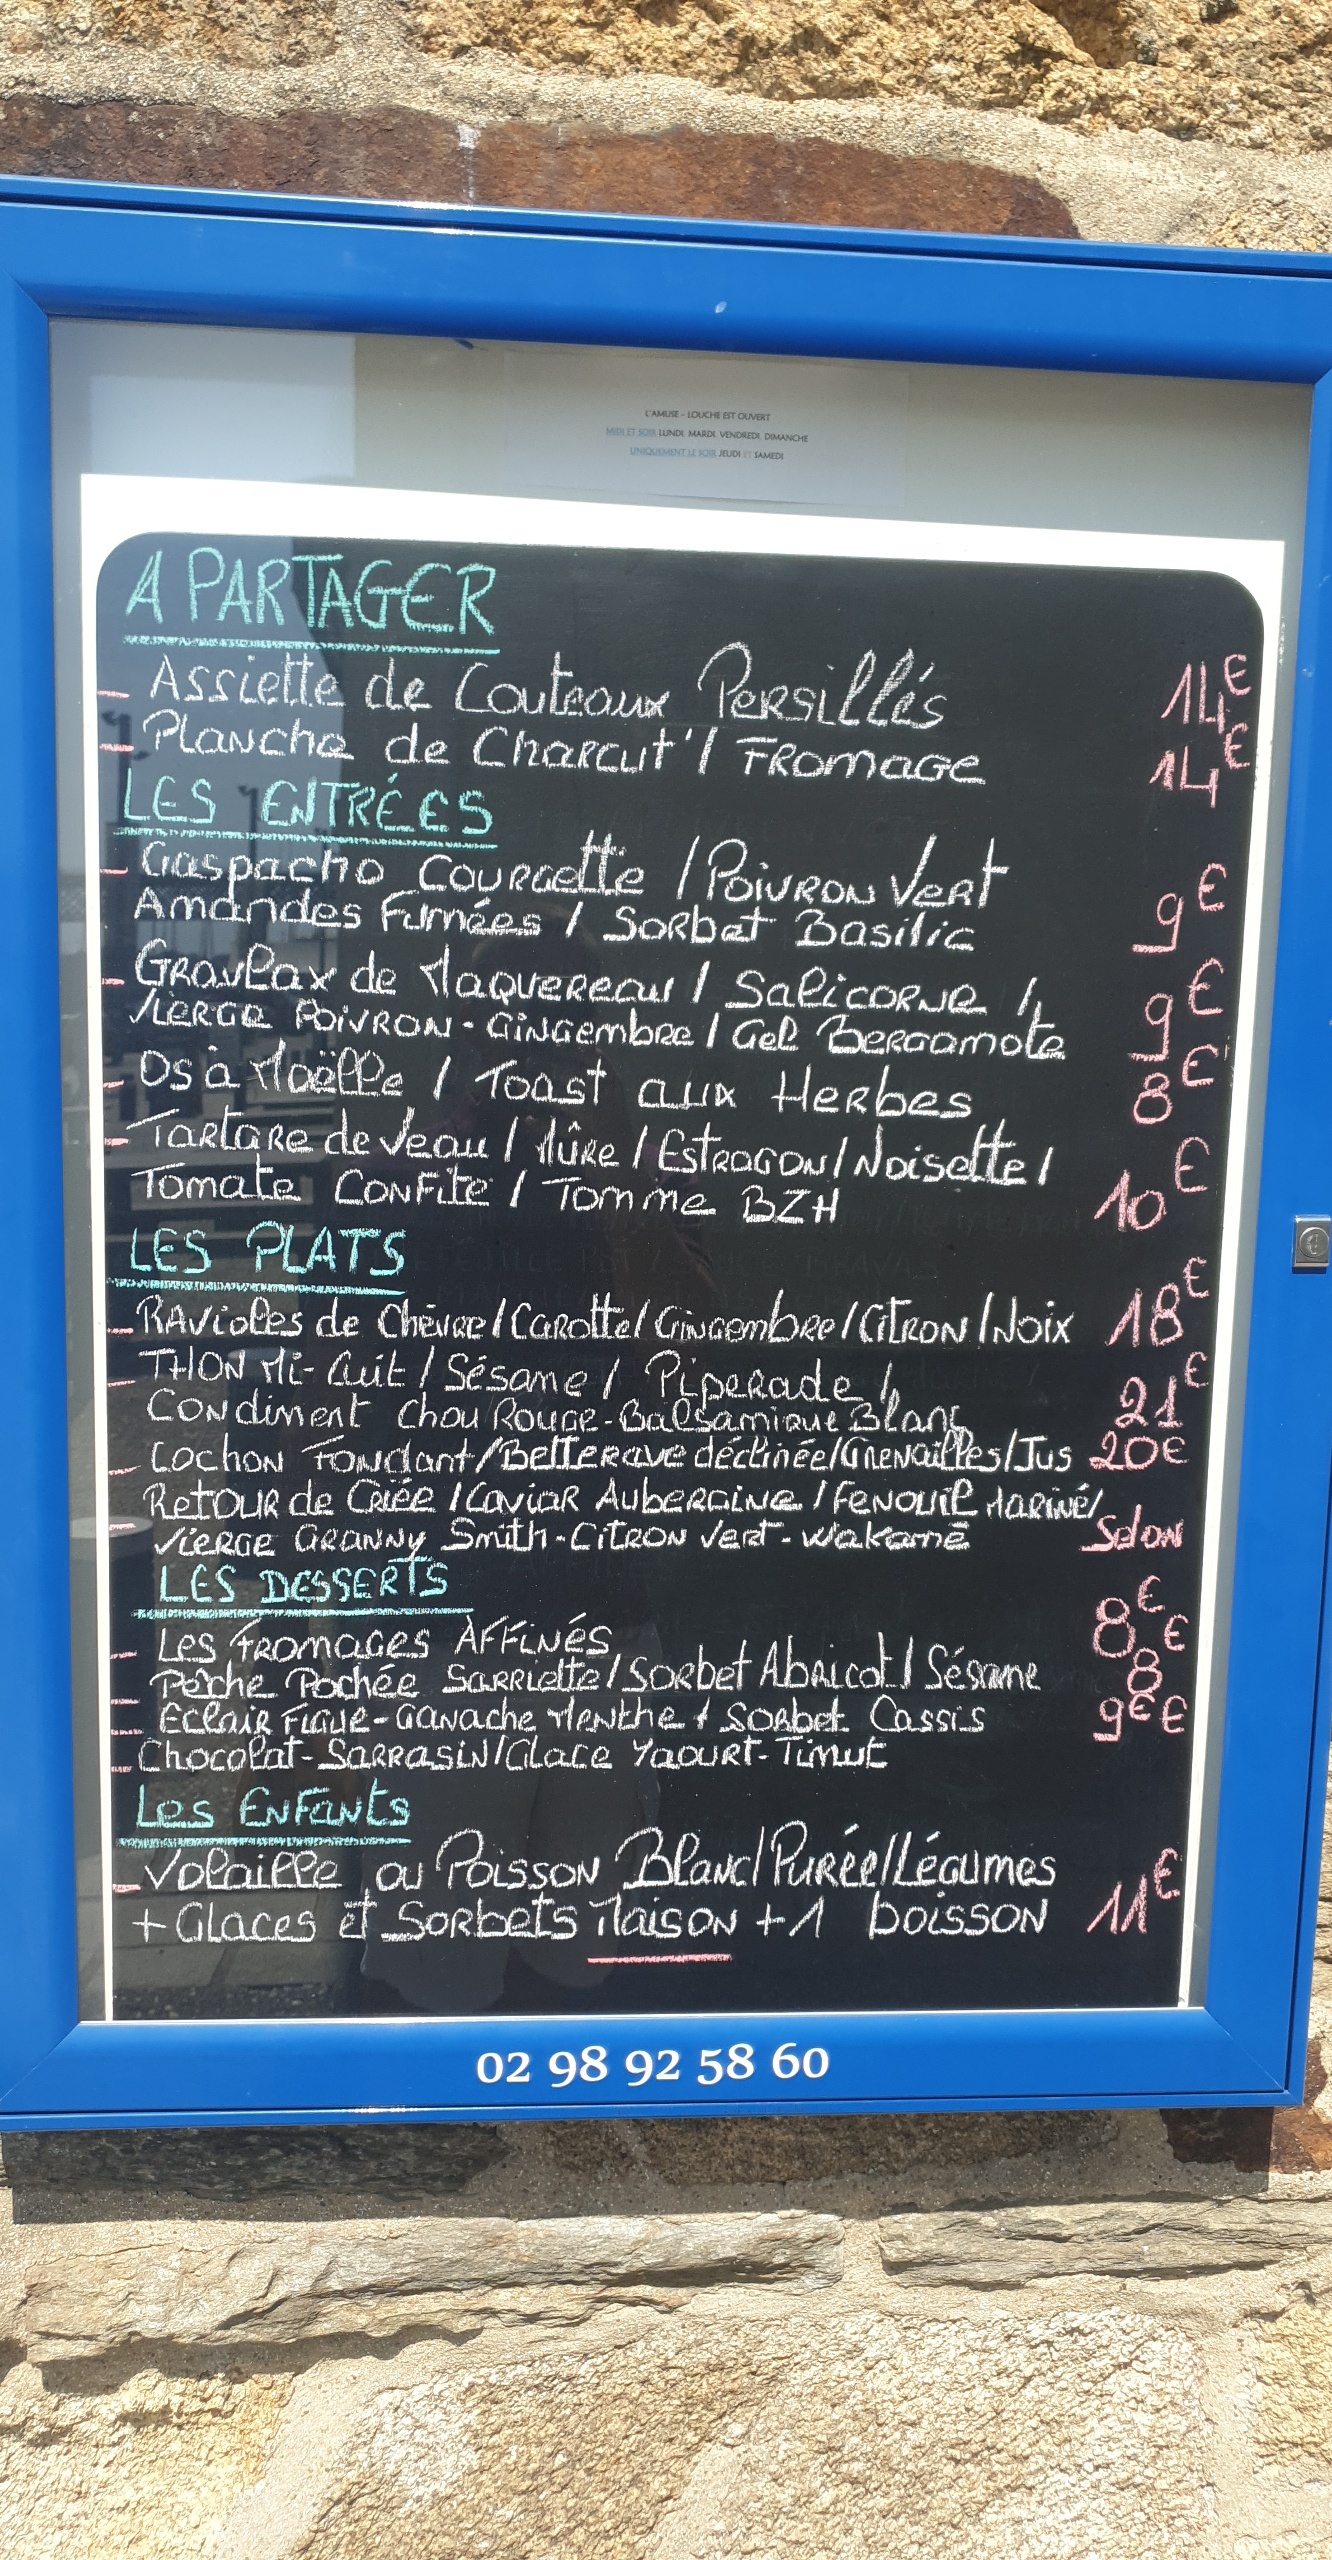 L'AMUSE - LOUCHE EST OUVERT
MIDI ET SOIR LUNDI, MARDI, VENDREDI, DIMANCHE
UNIQUEMENT LE SOIR JEUDI ET SAMEDI
A PARTAGER
- Assiette de Couteaux Persillés 14€
- Planche de Charcut' / Fromage 14€
LES ENTRÉES
- Gaspacho Courgette / Poivron Vert
Amandes Fumées / Sorbet Basilic 9€
- Gravlax de Maquereau / Salicorne /
Vierge Poivron - Gingembre / Gel Bergamote 9€
- Os à Moëlle / Toast aux Herbes 8€
- Tartare de Veau / Mûre / Estragon / Noisette /
Tomate Confite / Tomme BZH 10€
LES PLATS
- Ravioles de Chèvre / Carotte / Gingembre / Citron / Noix 18€
- THON Mi-Cuit / Sésame / Piperade /
Condiment Chou Rouge - Balsamique Blanc 21€
- Cochon Fondant / Betterave déclinée / Grenailles / Jus 20€
- Retour de Criée / Caviar Aubergine / Fenouil Mariné /
Vierge Granny Smith - Citron Vert - Wakamé Selon
LES DESSERTS
- Les Fromages Affinés 8€
- Pêche Pochée Sarriette / Sorbet Abricot / Sésame 8€
- Eclair Figue - Ganache Menthe / Sorbet Cassis 9€
- Chocolat - Sarrasin / Glace Yaourt - Timut €
Les Enfants
- Volaille ou Poisson Blanc / Purée / Légumes
+ Glaces et Sorbets Maison + 1 boisson 11€
02 98 92 58 60